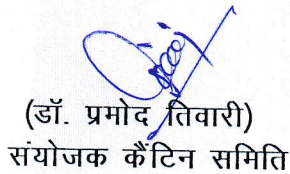 (डॉ. प्रमोद तिवारी)
संयोजक कैंटिन समिति